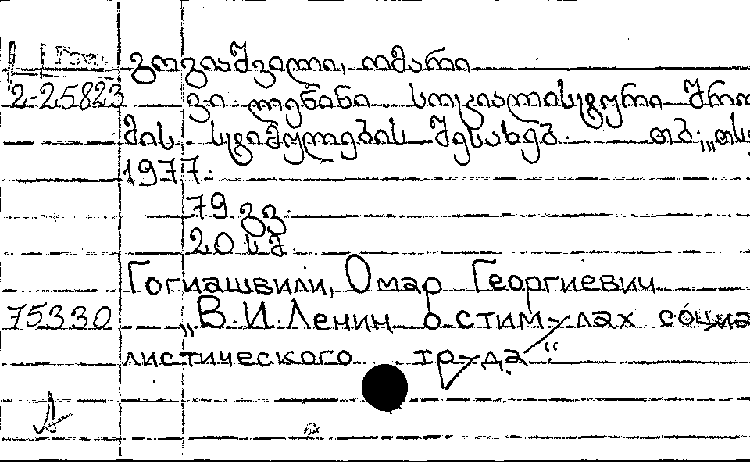 გოგიაშვილი, ომარი
2-25823 ვ.ი. ლენინი სოციალისტური შრო
მის სტიმულების შესახებ. თბ., „თსუ
1977.
79 გვ.
20 სმ.
Гогиашвили, Омар Георгиевич
75330 „В.И.Ленин о стимулах социа
листического труда“